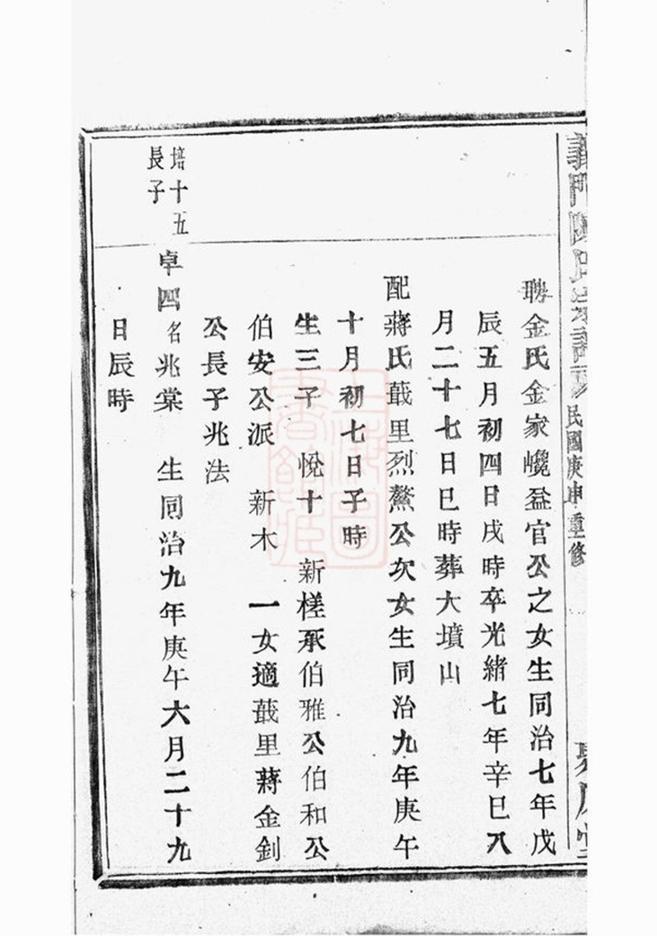 義門陳氏宗譜
民國庚申重修
聘金氏金家巉益官公之女生同治七年戊
辰五月初四日戌時卒光緒七年辛巳八
月二十七日巳時葬大墳山
配蔣氏蕺里烈鰲公次女生同治九年庚午
十月初七日子時
生三子 悅十 新槎承伯雅公伯和公
伯安公派 新木 一女適蕺里蔣金釗
公長子兆法
培十五
長子
卓四名兆棠 生同治九年庚午六月二十九
日辰時
上海圖書館藏